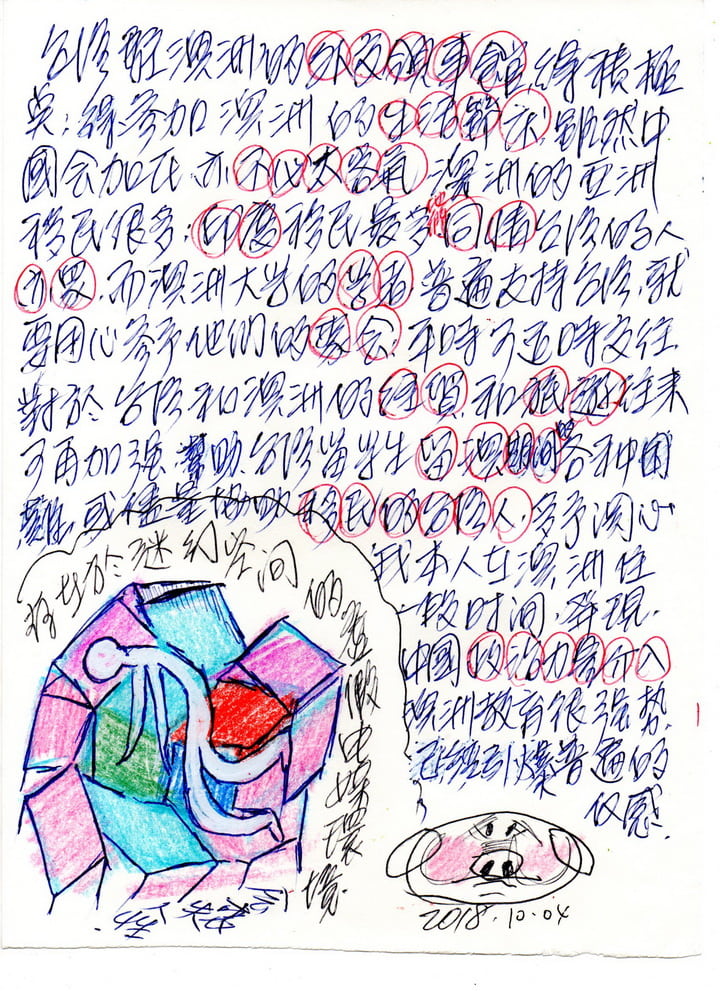 台灣駐澳洲的外交領事館,得積極
点;得參加澳洲的生活節奏,雖然中
國会加在,亦不必太客氣,澳洲的亞洲
移民很多;印度移民最多,他們同情台灣的人
亦眾,而澳洲大学的学者,普遍支持台灣,就
要用心參予他們的宴会,平時可適時交往,
對於台灣和澳洲的經貿,和旅遊往來
可再加強,幫助台灣留学生,留澳期間的各种困
難,或儘量協助移民的台灣人,多予関心
我本人在澳洲住
一段时间,發現,
中國政治力量介入
澳洲教育很強勢,
引爆普遍的
反感.
於迷幻空间的虛擬
環境
2018.10.04